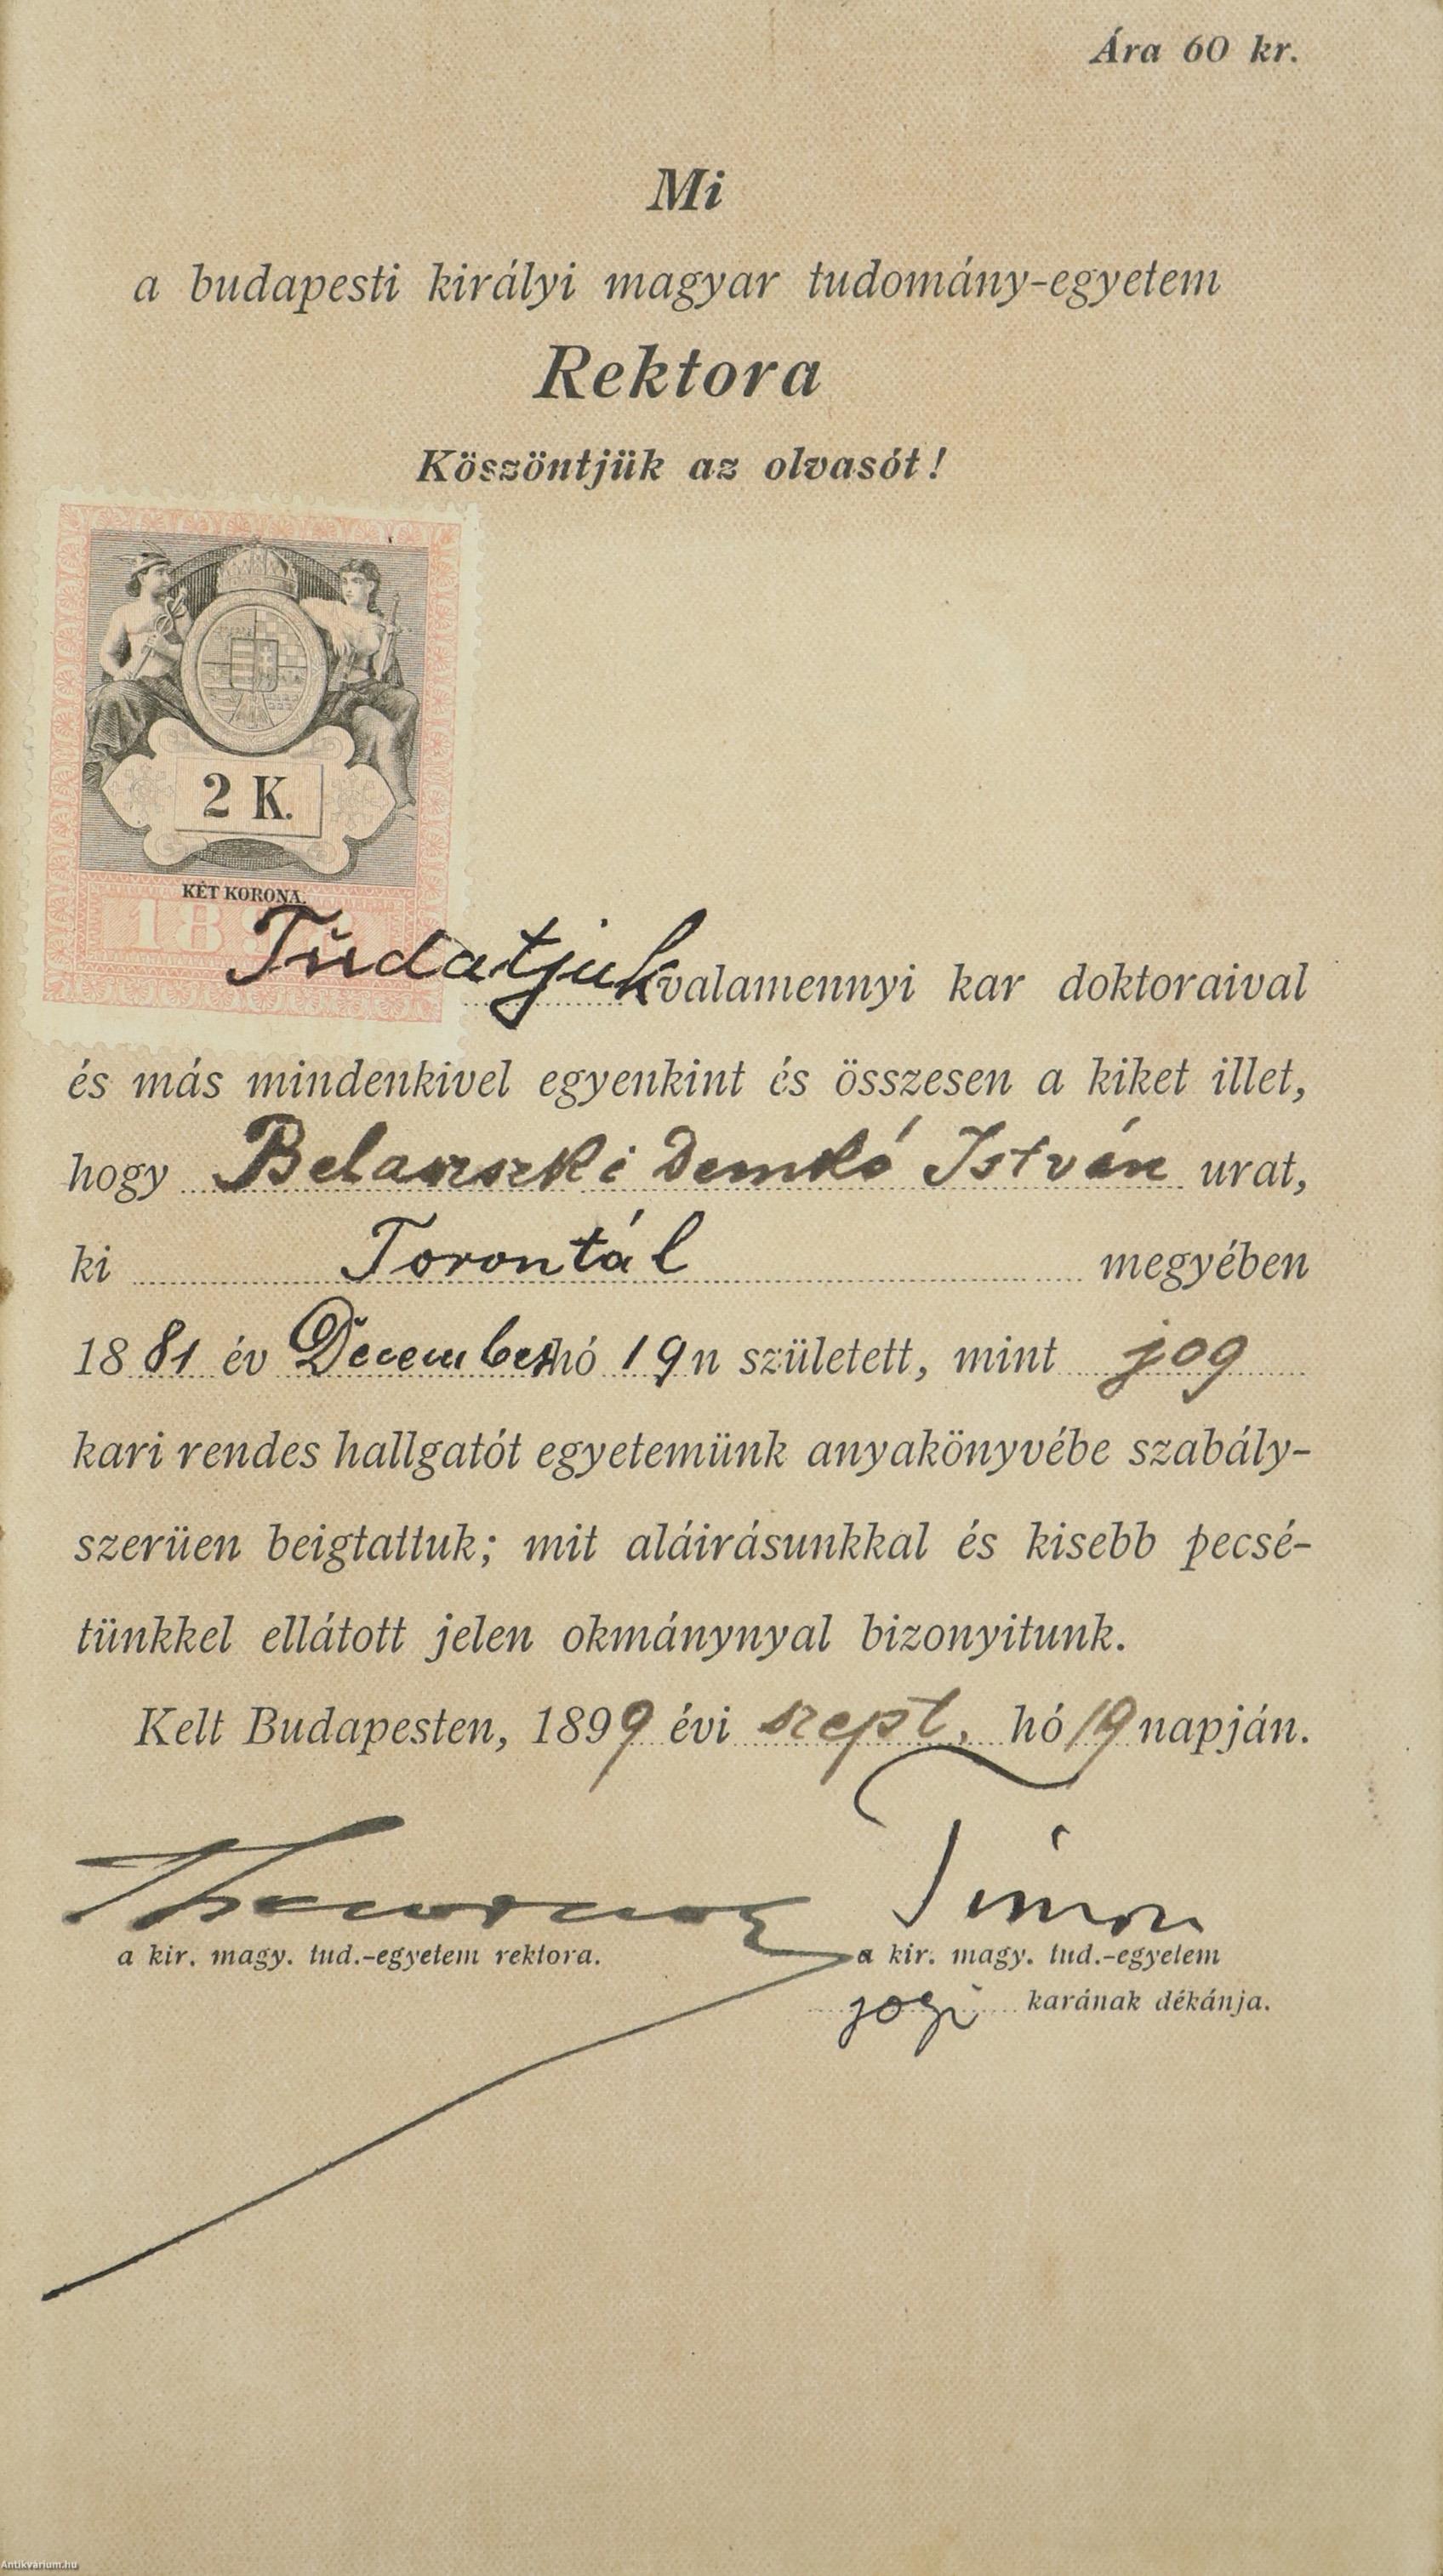 Ára 60 kr.
Mi
a budapesti királyi magyar tudomány-egyetem
Rektora
Köszöntjük az olvasót!
2 K.
KÉT KORONA.
Tudatjuk valamennyi kar doktoraival
és más mindenkivel egyenkint és összesen a kiket illet,
hogy Demkó István urat,
ki Torontál megyében
1881 év December hó 19n született, mint jog
kari rendes hallgatót egyetemünk anyakönyvébe szabály-
szerüen beigtattuk; mit aláirásunkkal és kisebb pecsé-
tünkkel ellátott jelen okmánynyal bizonyitunk.
Kelt Budapesten, 1899 évi szept. hó 19 napján.
Timon
a kir. magy. tud.-egyetem rektora.
a kir. magy. tud.-egyetem
jogi karának dékánja.
Antikvarium.hu